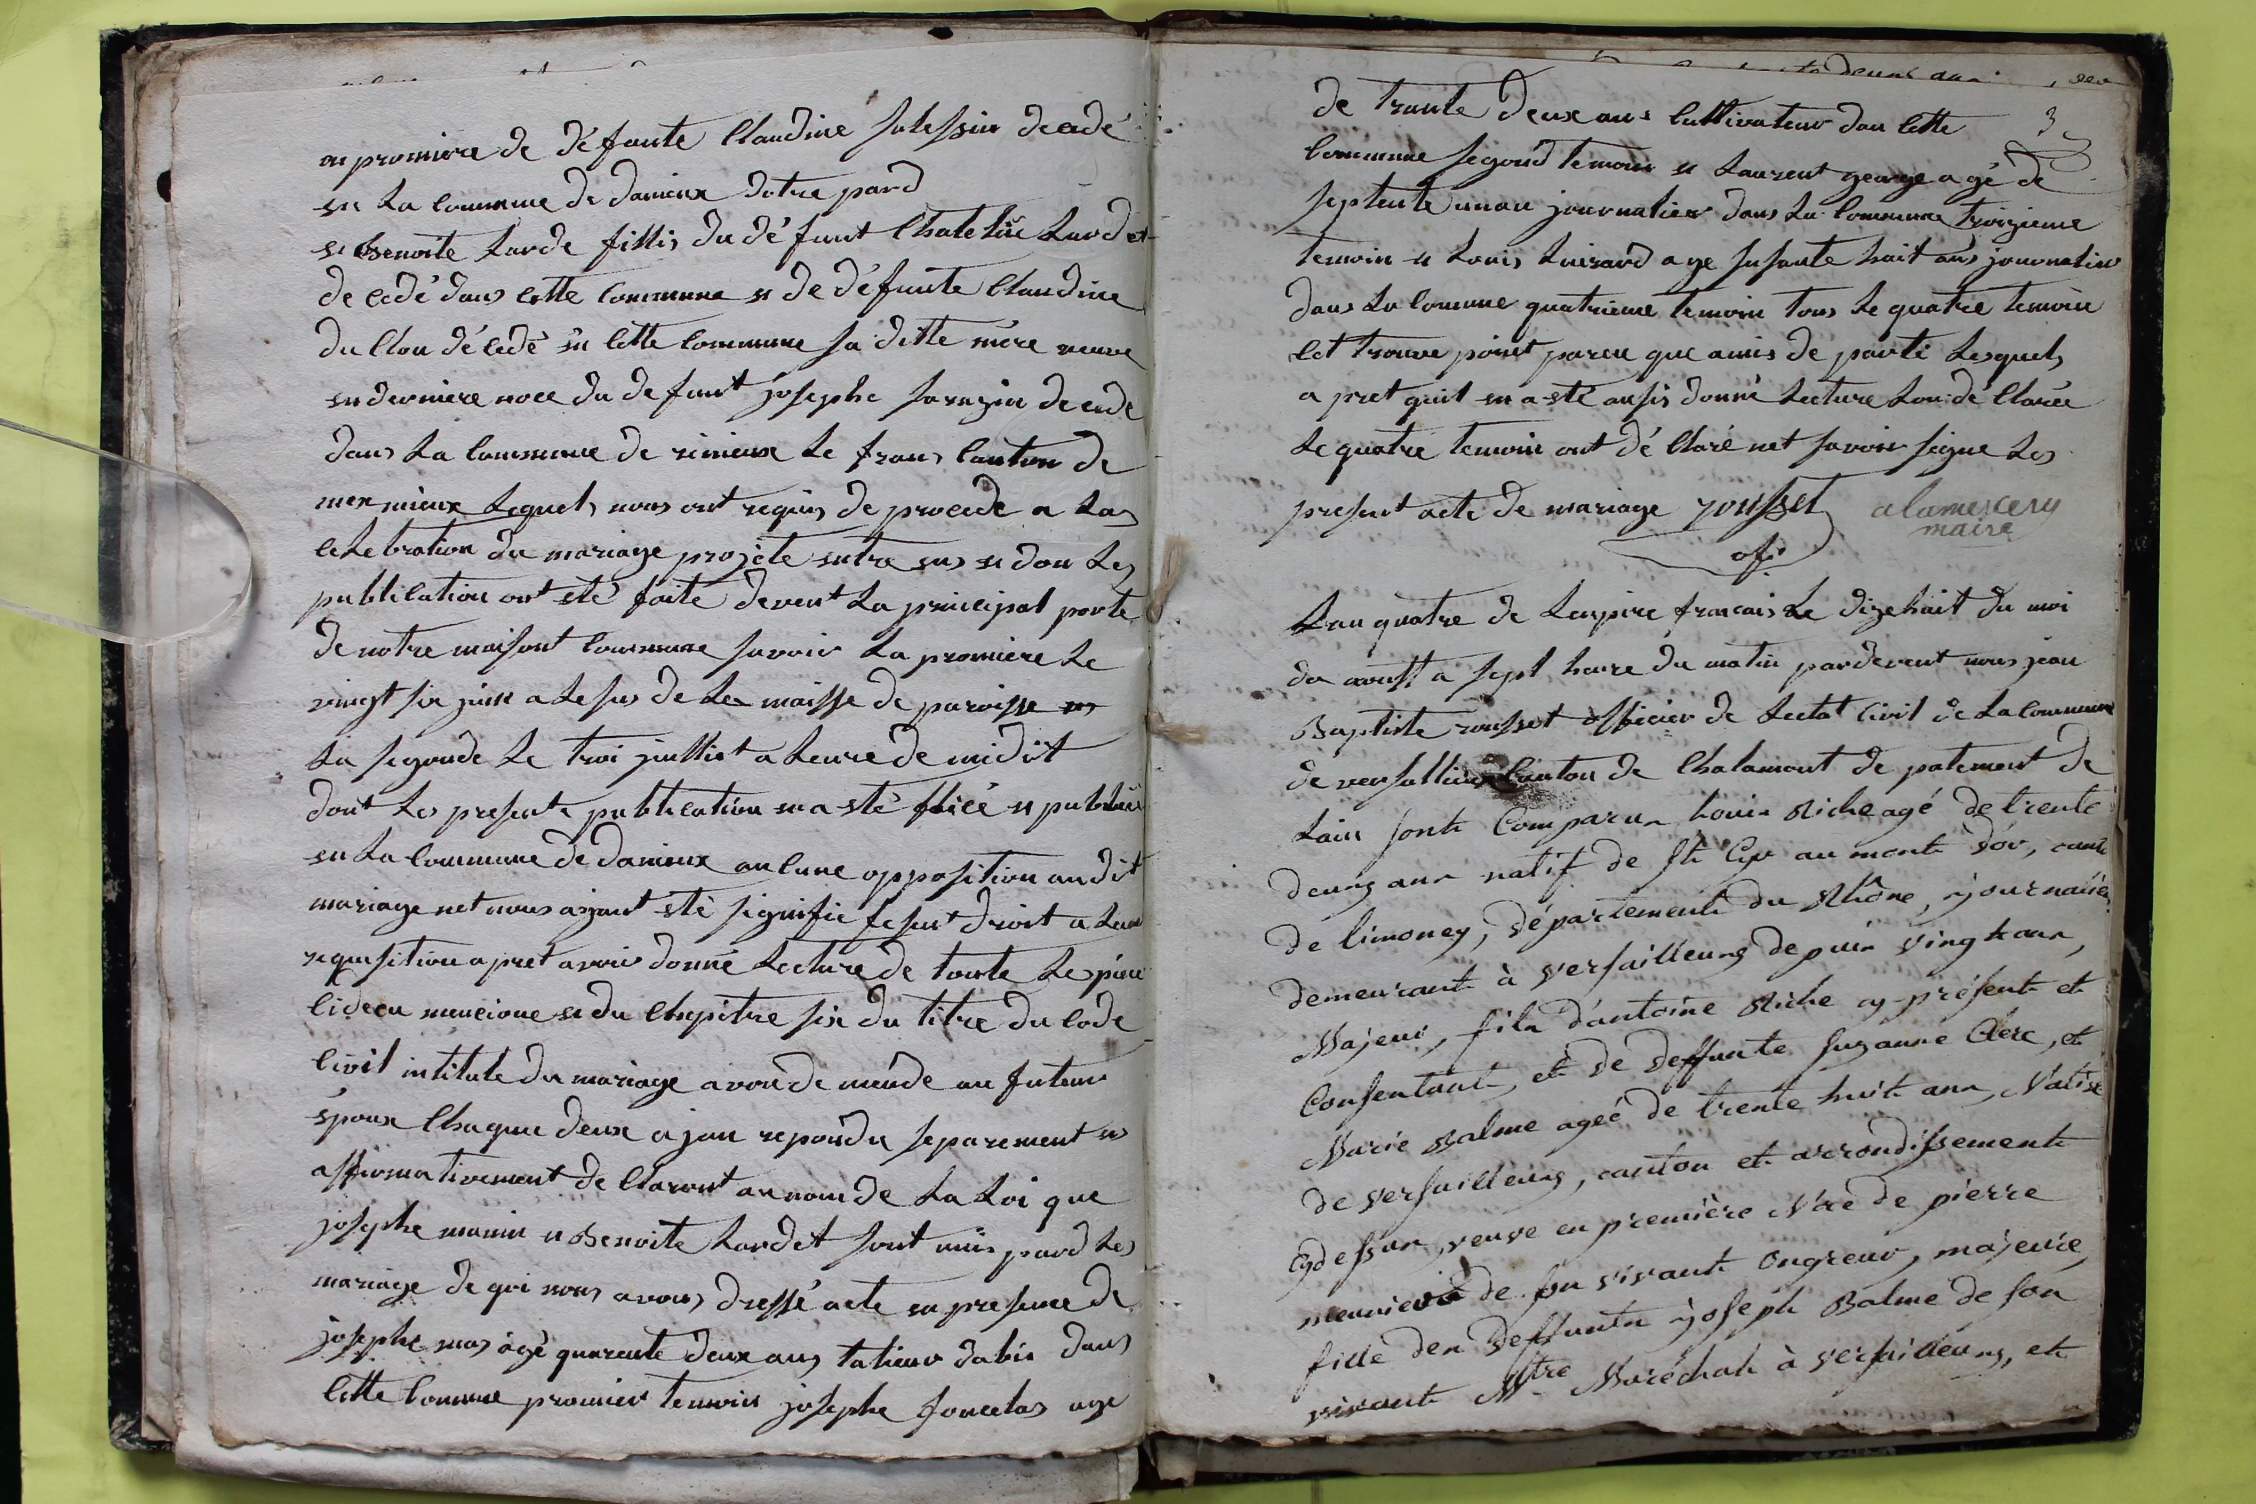 en promiere de défunte Claudine
en La Commune de danieux dotre pard
et Benoite Larde fillis du défunt Chatelus Lardet
decedé dans Cette Commune et de défunte Claudine
du Clou décedé en Cette Commune sa ditte mére veuve
en derniere noce du defunt josephe Sarazin decede
dans La Commune de rinieux Le frans Canton de
mexmieux Lequels nous ont requis de procede a Las
Celebration du mariage projete entre eus et don Les
publication ont eté faite devent La principal porte
de notre maisont Commune savoir La promiere Le
vingt six juin a Lesus de Le maisse de paroisse es
La segonde Le troi jullist a Leure de midit
dont Les presente publication en a eté et publiée
en La Commune de danieux aucune opposition audit
mariage net nous ayant eté signifie fesent droit a Leur
requisition apret avoir donné Lecture de toute Les piece
Cideçu mencione et du Chepitre six du titre du Code
Civil intitule du mariage avon de mende au futeur
époux Chaqun deux ajan repondu separement es
affirmativement de Claront au nom de La Loi que
josephe manin et Benoite Lardet sont unis pard Les
mariage de qui nous avons dressé acte en presence de
josephe mas âgé quarente deux ans talieur dabis dans
Cette Commune promier temoin josephe foncelas age
3
de trante deux ans Cultivateur dan Cette
Commune segond temoin et Laurent george agé de
septente unan journalier dans La Commune troizieme
temoin et Louis Luizard age susante huit ans journalier
dans La Comune quatrieme temoin tous Le quatre temoin
Cet trouve point paren que amis de parti Lesquels
apret quil en a eté aussis donné Lecture Lon dé Clarée
Le quatre temoin ont dé Claré net savoir signe Les
present acte de mariage rousset alamercery
ofi maire
Lan quatre de Lenpire francais Le dizehuit du moi
da aoust a sept hure du matin pardevent nous jean
Baptiste rousset officier de Lectat Civil de La Commune
de versallieux Canton de Chalamont de patement de
Lain sont Comparus Louis Riche agé de trente
deux ans natif de St Cyr au mont d'or, canton
de limoney, département du Rhône, journalier
demeurant à versailleux depuis vingt ans,
Majeur, fils d'antoine Riche cy-présent et
Consentant, et de deffunte Suzanne Clerc, et
Marie Balme ageé de trente huit ans, Native
de versailleux, canton et arrondissement
Cydessus, veuve en première Nôce de pierre
meunier de son vivant ongreur, majeure,
fille des deffunts joseph Balme de son
vivant Mtre Maréchal à versailleux, et